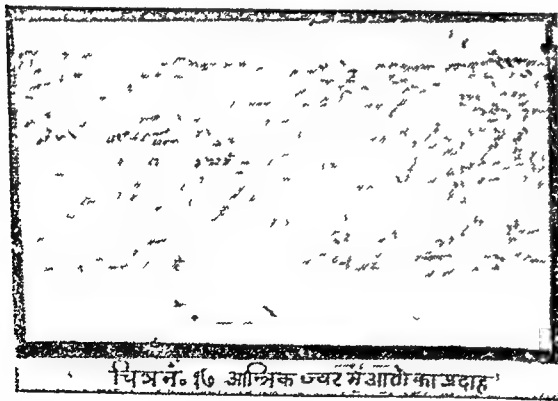 चित्र नं॰ १७ आन्त्रिक ज्वर में आतों का प्रदाह